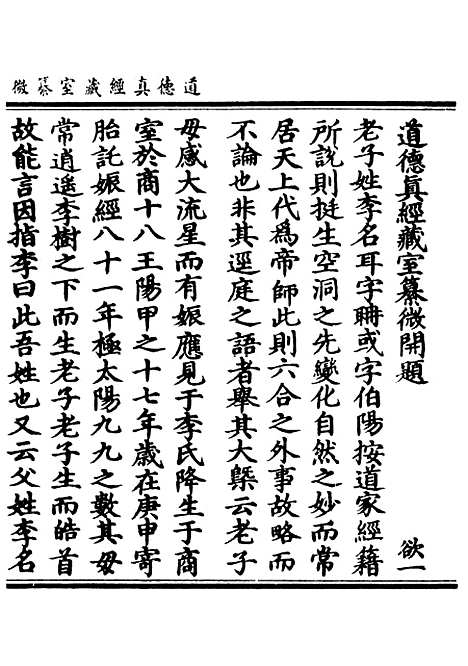 道德真經藏室纂微
道德眞經藏室纂微開題 欲一
老子姓李名耳字聃或字伯陽按道家經籍
所説則挺生空洞之先變化自然之妙而常
居天上代爲帝師此則六合之外事故略而
不論也非其逕庭之語者舉其大槩云老子
母感大流星而有娠應見于李氏降生于商
室於商十八王陽甲之十七年歲在庚申寄
胎託娠經八十一年極太陽九九之數其母
常逍遥李樹之下而生老子老子生而皓首
故能言因指李曰此吾姓也又云父姓李名